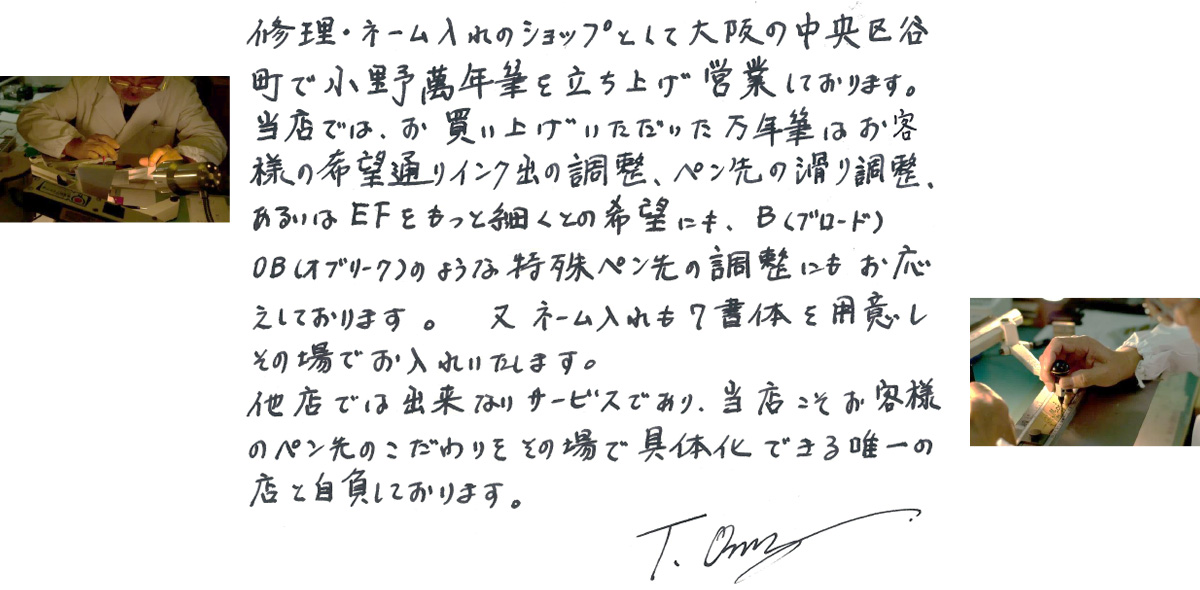 修理・ネーム入れのショップとして大阪の中央区谷
町で小野萬年筆を立ち上げ営業しております。
当店では、お買い上げいただいた万年筆はお客
様の希望通りインク出の調整、ペン先の滑り調整、
あるいはEFをもっと細くとの希望にも、B(ブロード)
OB(オブリーク)のような特殊ペン先の調整にもお応
えしております。 又ネーム入れも7書体を用意し
その場でお入れいたします。
他店では出来ないサービスであり、当店こそお客様
のペン先のこだわりをその場で具体化できる唯一の
店と自負しております。
T. Ono